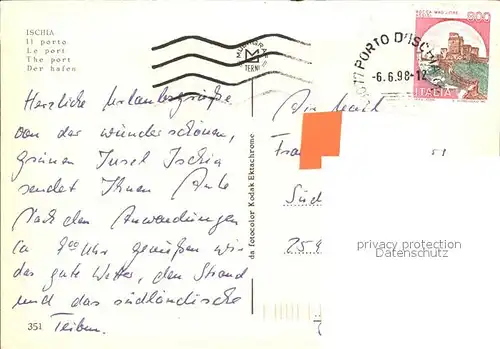 ISCHIA
Il porto
Le port
The port
Der hafen
TERNI
PORTO D'ISCHIA
-6.6.98-12
ROCCA MAGGIORE
800
ITALIA
Herzliche Urlaubsgrüße
von der wunderschönen,
grünen Insel Ischia
sendet Ihnen
Nach den Anwendungen
ca 7⁰⁰ Uhr genießen wir
das gute Wetter, den Strand
und das südländische
Treiben.
351
da fotocolor Kodak Ektachrome
Fra
Süd
privacy protection
Datenschutz